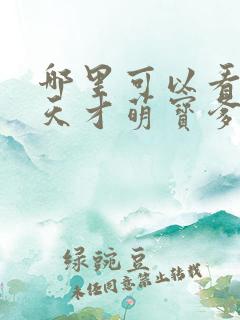 哪里可以看
天才萌宝爹
绿豌豆
未经同意禁止转载